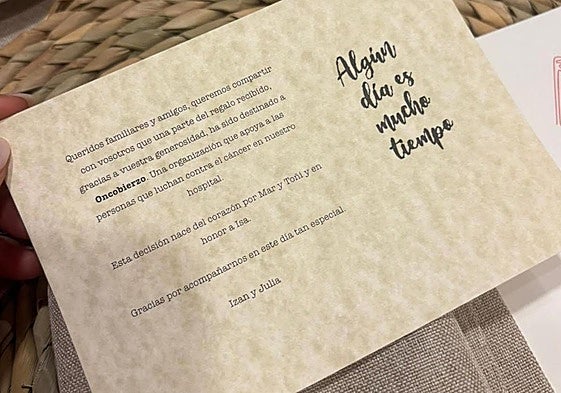 Queridos familiares y amigos, queremos compartir
con vosotros que una parte del regalo recibido,
gracias a vuestra generosidad, ha sido destinado a
Oncobierzo. Una organización que apoya a las
personas que luchan contra el cáncer en nuestro
hospital.
Esta decisión nace del corazón por Mar y Toñi y en
honor a Isa.
Gracias por acompañarnos en este día tan especial.
Izan y Julia
Algún
día es
mucho
tiempo